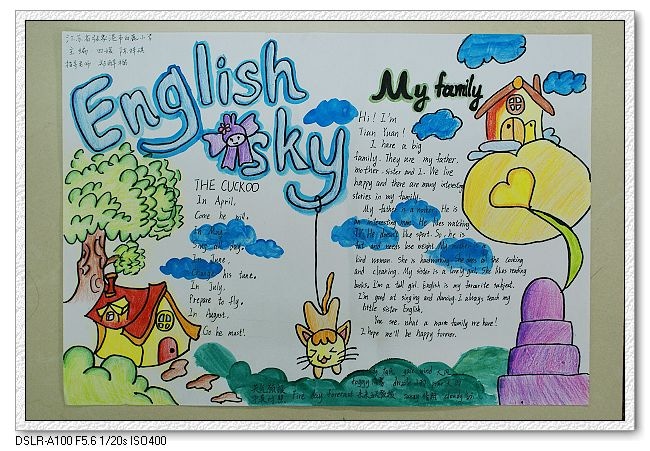 江苏省张家港市白鹿小学
主编 田媛
指导老师
English
sky
My family
THE CUCKOO
In April,
Come he will.
In May,
Sing all day.
In June,
Change his tune.
In July,
Prepare to fly.
In August,
Go he must!
Hi! I'm
Tian Yuan!
I have a big
family. They are my father.
mother. sister and I. We live
happy and there are many interesting
stories in my family.
My father is a worker. He is
an interesting man. He likes watching
TV. He doesn't like sport. So, he is
fat and needs lose weight. My mother
kind woman. She is hardworking. She does all the cooking
and cleaning. My sister is a lovely girl. She likes reading
books. I'm a tall girl. English is my favourite subject.
I'm good at singing and dancing. I always teach my
little sister English.
You see, what a warm family we have!
I hope we'll be happy forever.
wind
foggy
Five day forecast 未来五天天气预报 sunny 晴朗 cloudy
DSLR-A100 F5.6 1/20s ISO400